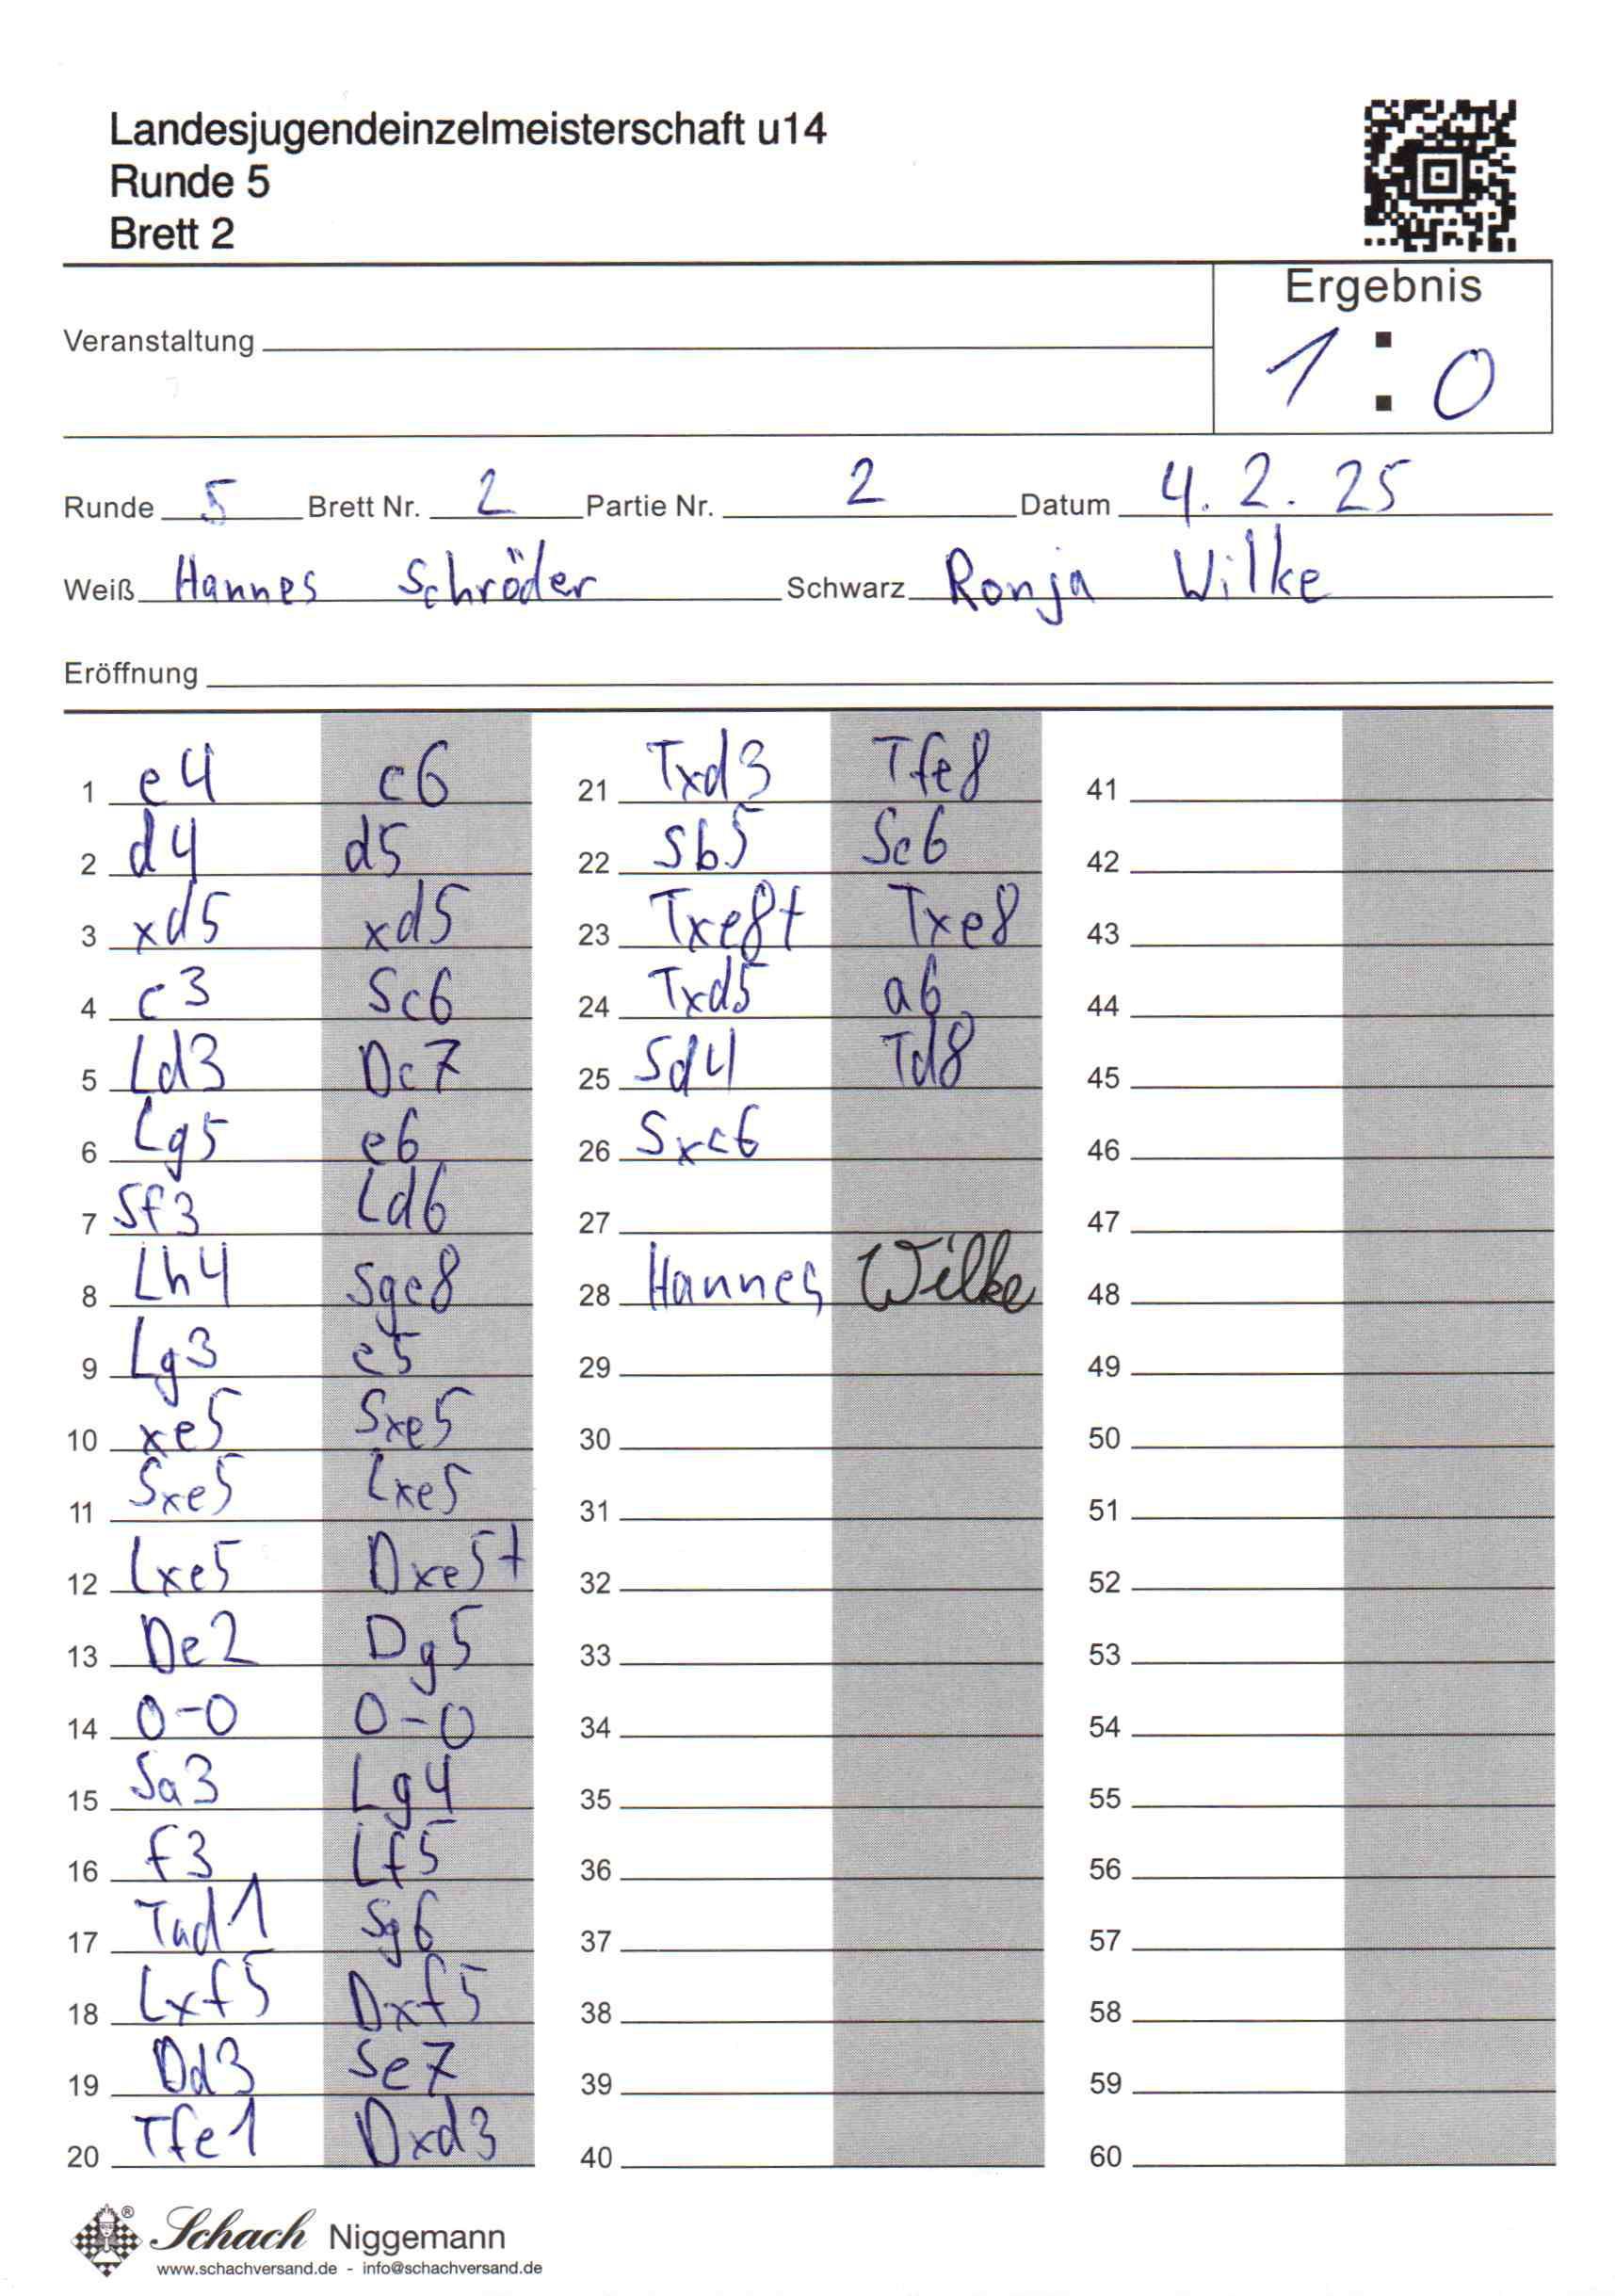 Landesjugendeinzelmeisterschaft u14
Runde 5
Brett 2
Ergebnis
1 : 0
Veranstaltung
Runde 5 Brett Nr. 2 Partie Nr. 2 Datum 4. 2. 25
Weiß Hannes Schröder Schwarz Ronja Wilke
Eröffnung
1 e4 c6
2 d4 d5
3 xd5 xd5
4 c3 Sc6
5 Ld3 Dc7
6 Lg5 e6
7 Sf3 Ld6
8 Lh4 Sge8
9 Lg3 e5
10 xe5 Sxe5
11 Sxe5 Lxe5
12 Lxe5 Dxe5+
13 De2 Dg5
14 0-0 0-0
15 Sa3 Lg4
16 f3 Lf5
17 Tad1 Sg6
18 Lxf5 Dxf5
19 Dd3 Se7
20 Tfe1 Dxd3
21 Txd3 Tfe8
22 Sb5 Sc6
23 Txe8+ Txe8
24 Txd5 a6
25 Sd4 Td8
26 Sxc6
27
28 Hannes Wilke
29
30
31
32
33
34
35
36
37
38
39
40
41
42
43
44
45
46
47
48
49
50
51
52
53
54
55
56
57
58
59
60
® Schach Niggemann
www.schachversand.de - info@schachversand.de